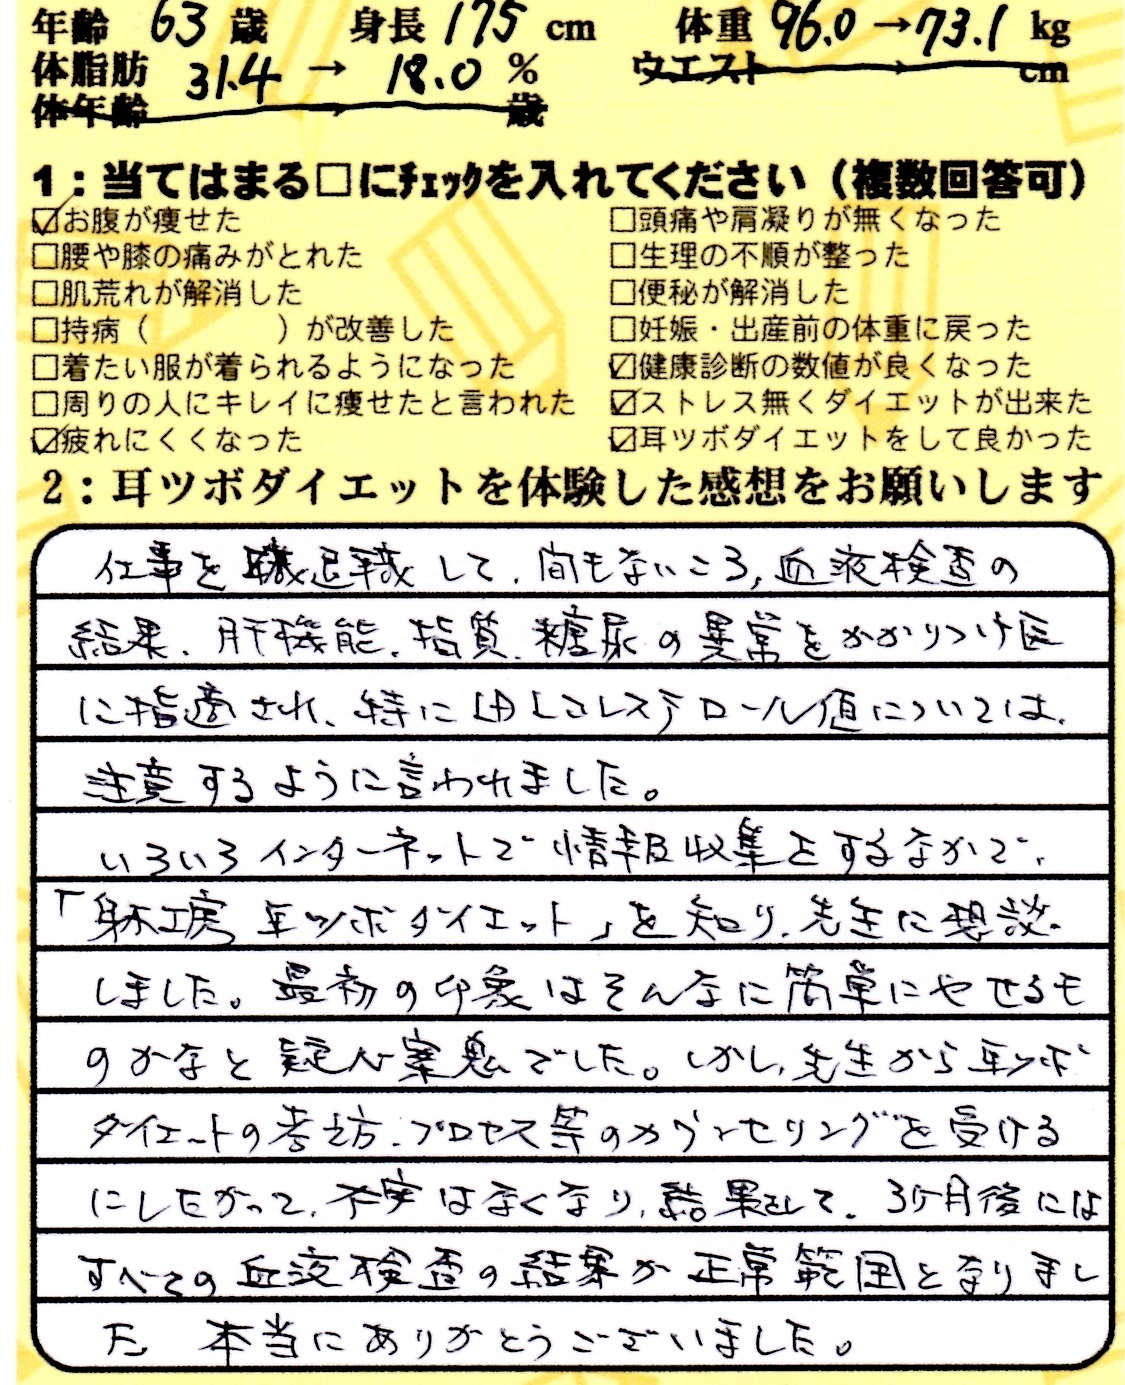 年齢 63 歳 身長 175 cm 体重 96.0 → 73.1 kg
体脂肪 31.4 → 18.0 % ウエスト → cm
体年齢 → 歳
1：当てはまる□にチェックを入れてください（複数回答可）
☑お腹が痩せた □頭痛や肩凝りが無くなった
□腰や膝の痛みがとれた □生理の不順が整った
□肌荒れが解消した □便秘が解消した
□持病（ ）が改善した □妊娠・出産前の体重に戻った
□着たい服が着られるようになった ☑健康診断の数値が良くなった
□周りの人にキレイに痩せたと言われた ☑ストレス無くダイエットが出来た
☑疲れにくくなった ☑耳ツボダイエットをして良かった
2：耳ツボダイエットを体験した感想をお願いします
仕事を退職して、間もないころ、血液検査の
結果、肝機能、脂質、糖尿の異常をかかりつけ医
に指適され、特にLDLコレステロール値については、
注意するように言われました。
いろいろインターネットで情報収集をするなかで、
「身体工房 耳ツボダイエット」を知り、先生に想談
しました。最初の印象はそんなに簡単にやせるも
のかなと疑心案鬼でした。しかし、先生から耳ツボ
ダイエットの考え方、プロセス等のカウンセリングを受ける
にしたがって、不安はなくなり、結果として、3ケ月後には
すべての血液検査の結果が正常範囲となりまし
た。本当にありがとうございました。